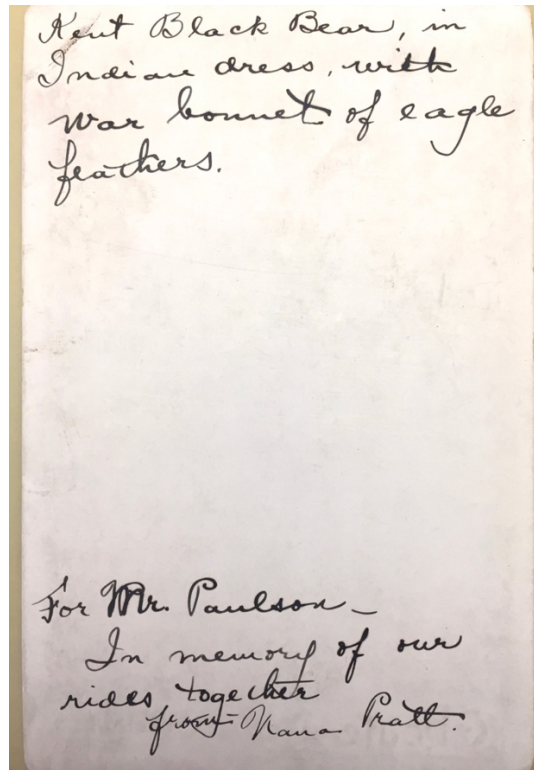 Kent Black Bear, in
Indian dress, with
war bonnet of eagle
feathers.
For Mr. Paulson –
In memory of our
rides together
from – Nana Pratt.